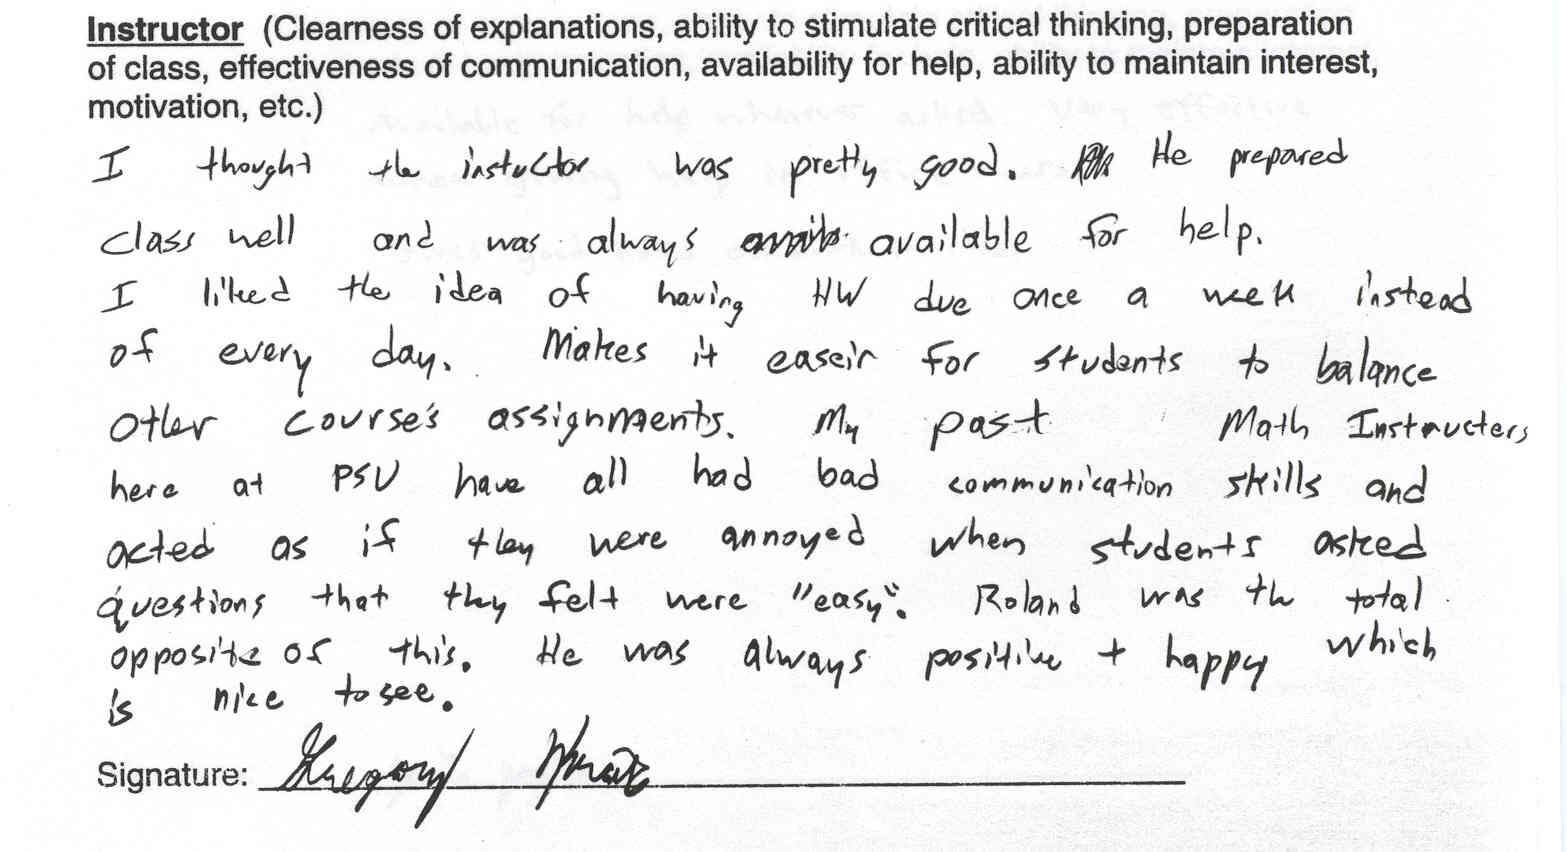 Instructor (Clearness of explanations, ability to stimulate critical thinking, preparation
of class, effectiveness of communication, availability for help, ability to maintain interest,
motivation, etc.)
I thought the instuctor was pretty good. He prepared
class well and was always available for help.
I liked the idea of having HW due once a week instead
of every day. Makes it easeir for students to balance
other course's assignments. My past Math Instructers
here at PSU have all had bad communication skills and
acted as if they were annoyed when students asked
questions that they felt were "easy". Roland was the total
opposite of this. He was always positive + happy which
is nice to see.
Signature: Gregory